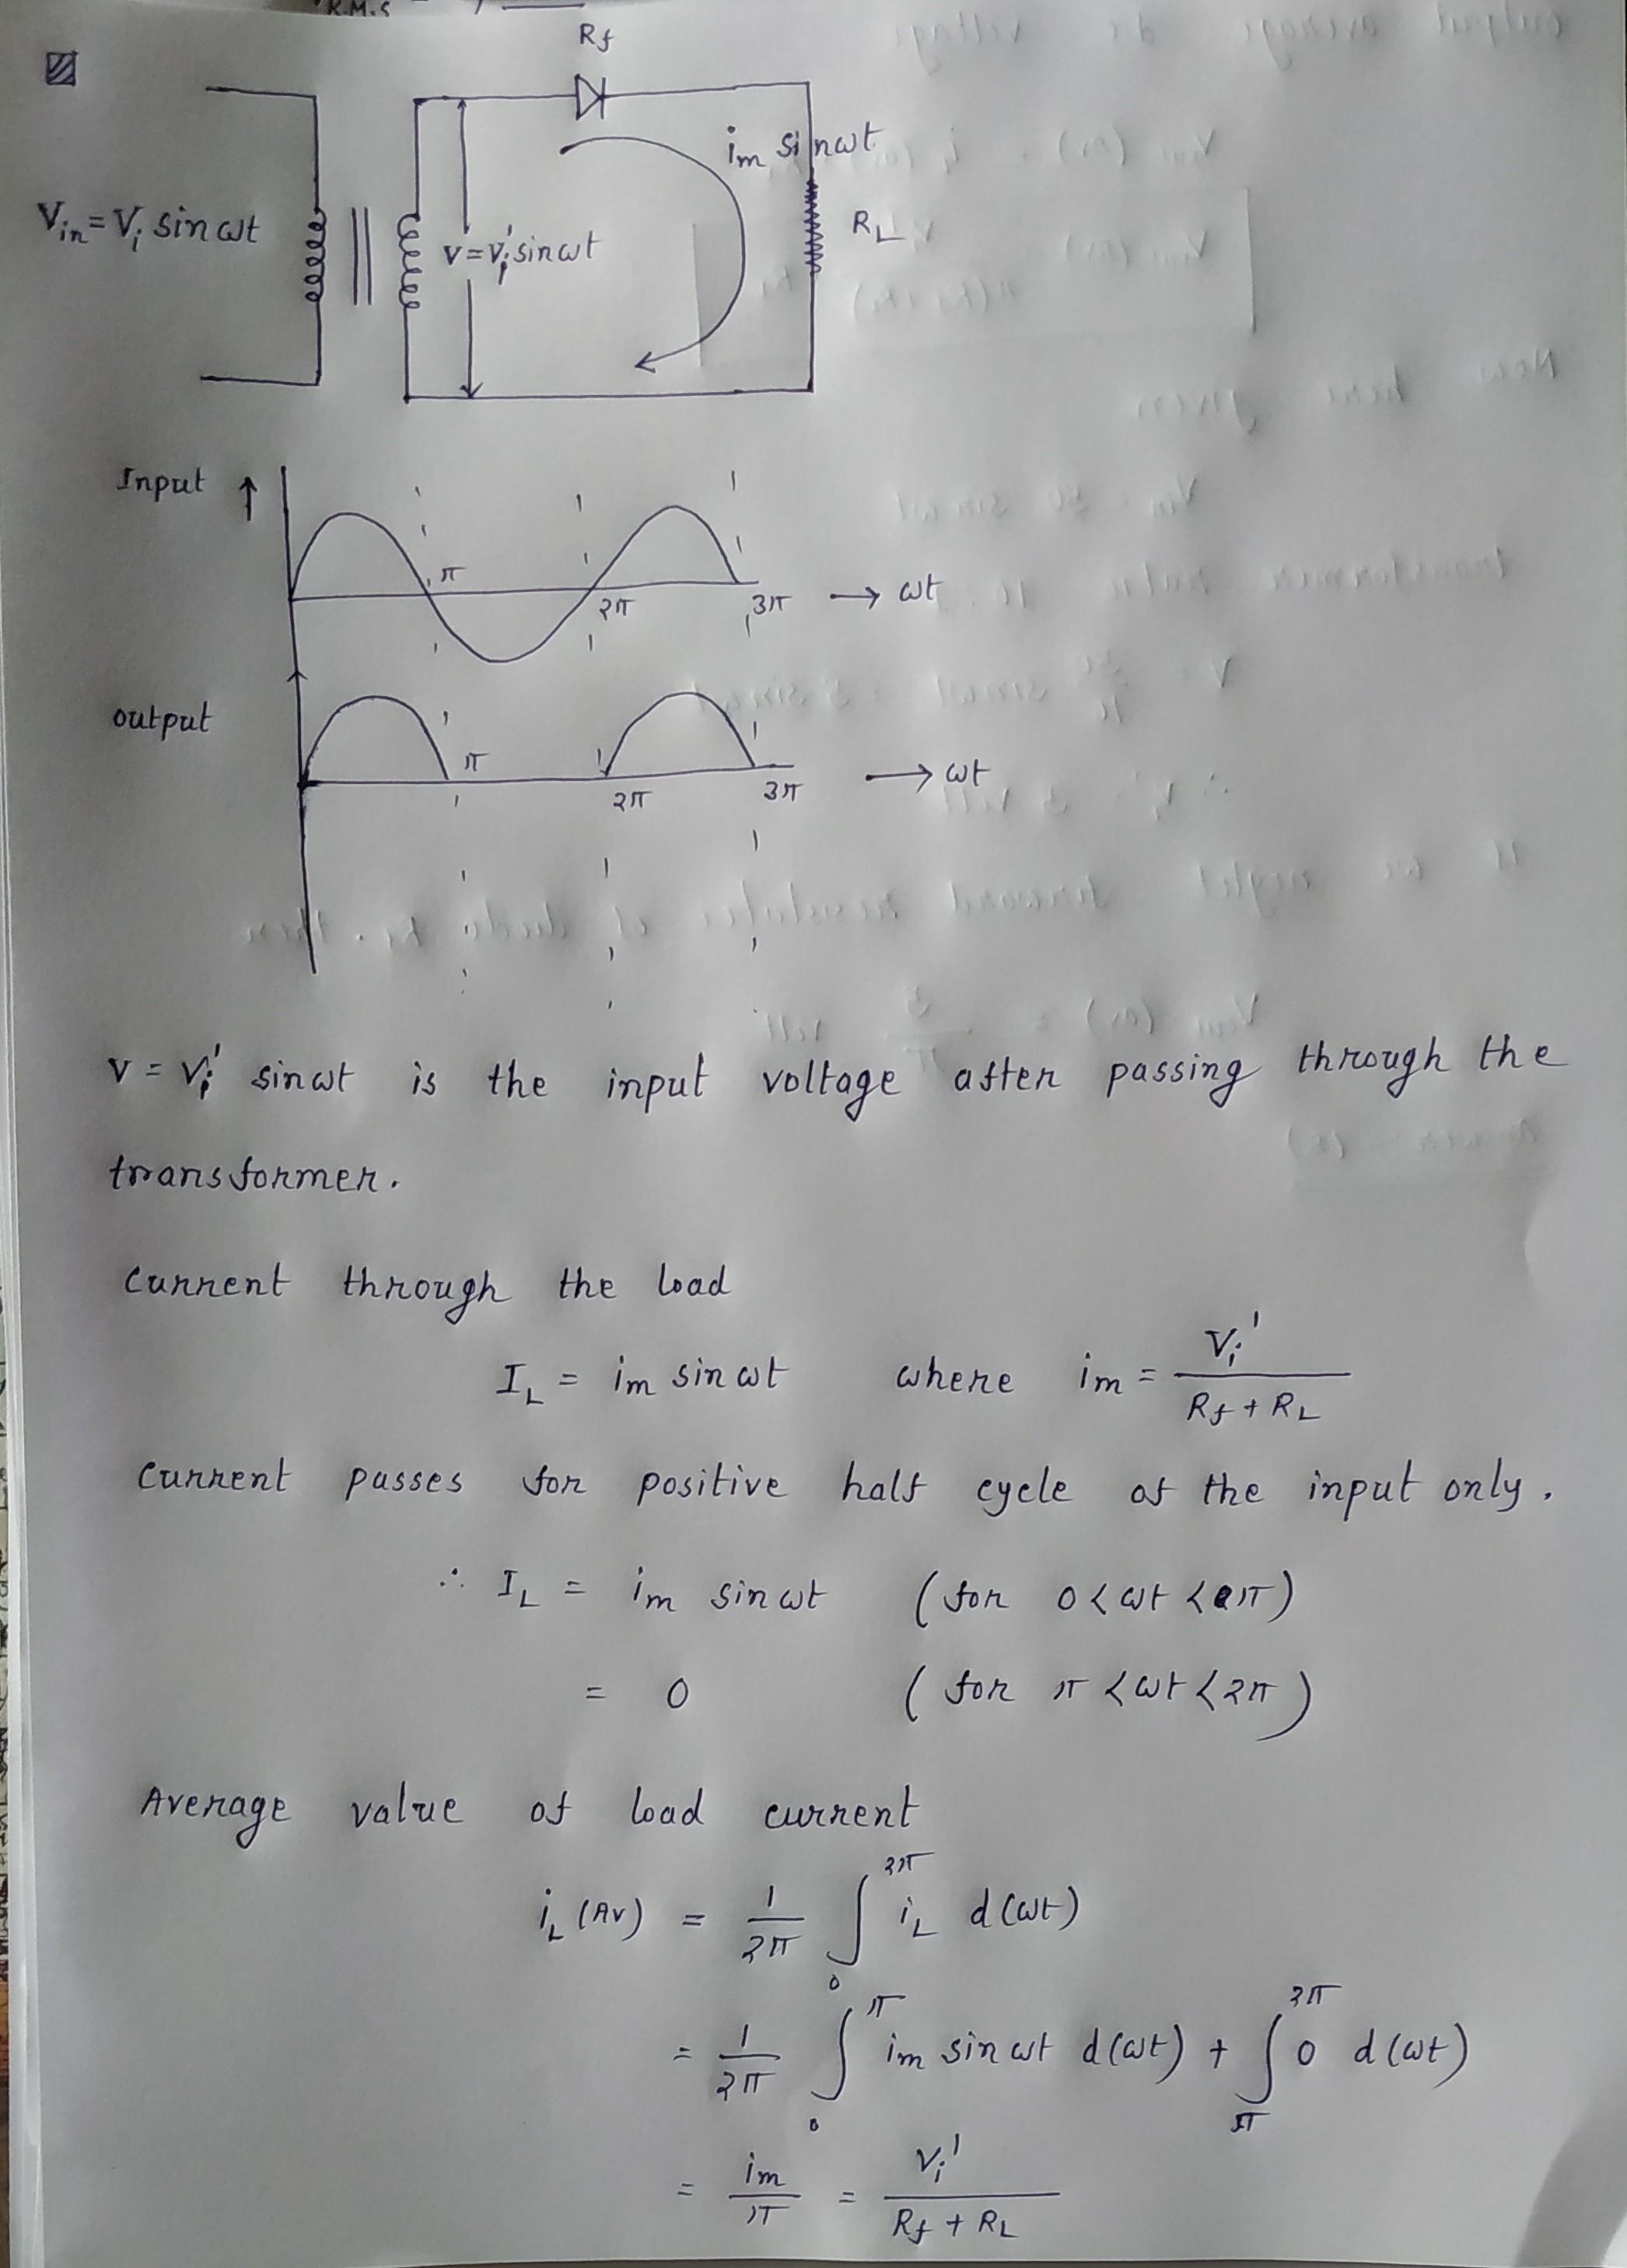 R.M.S
Rf
im sinωt
Vin = Vi sin ωt
v = Vi' sin ωt
RL
Input ↑
π
2π
3π
→ ωt
output
π
2π
3π
→ ωt
v = Vi' sin ωt is the input voltage after passing through the
transformer.
Current through the load
IL = im sin ωt where im = Vi' / (Rf + RL)
Current passes for positive half cycle of the input only.
∴ IL = im sin ωt (for 0 < ωt < π)
= 0 (for π < ωt < 2π)
Average value of load current
iL (Av) = 1/2π ∫₀^2π iL d(ωt)
= 1/2π ∫₀^π im sin ωt d(ωt) + ∫π^2π 0 d(ωt)
= im/π = Vi' / (Rf + RL)